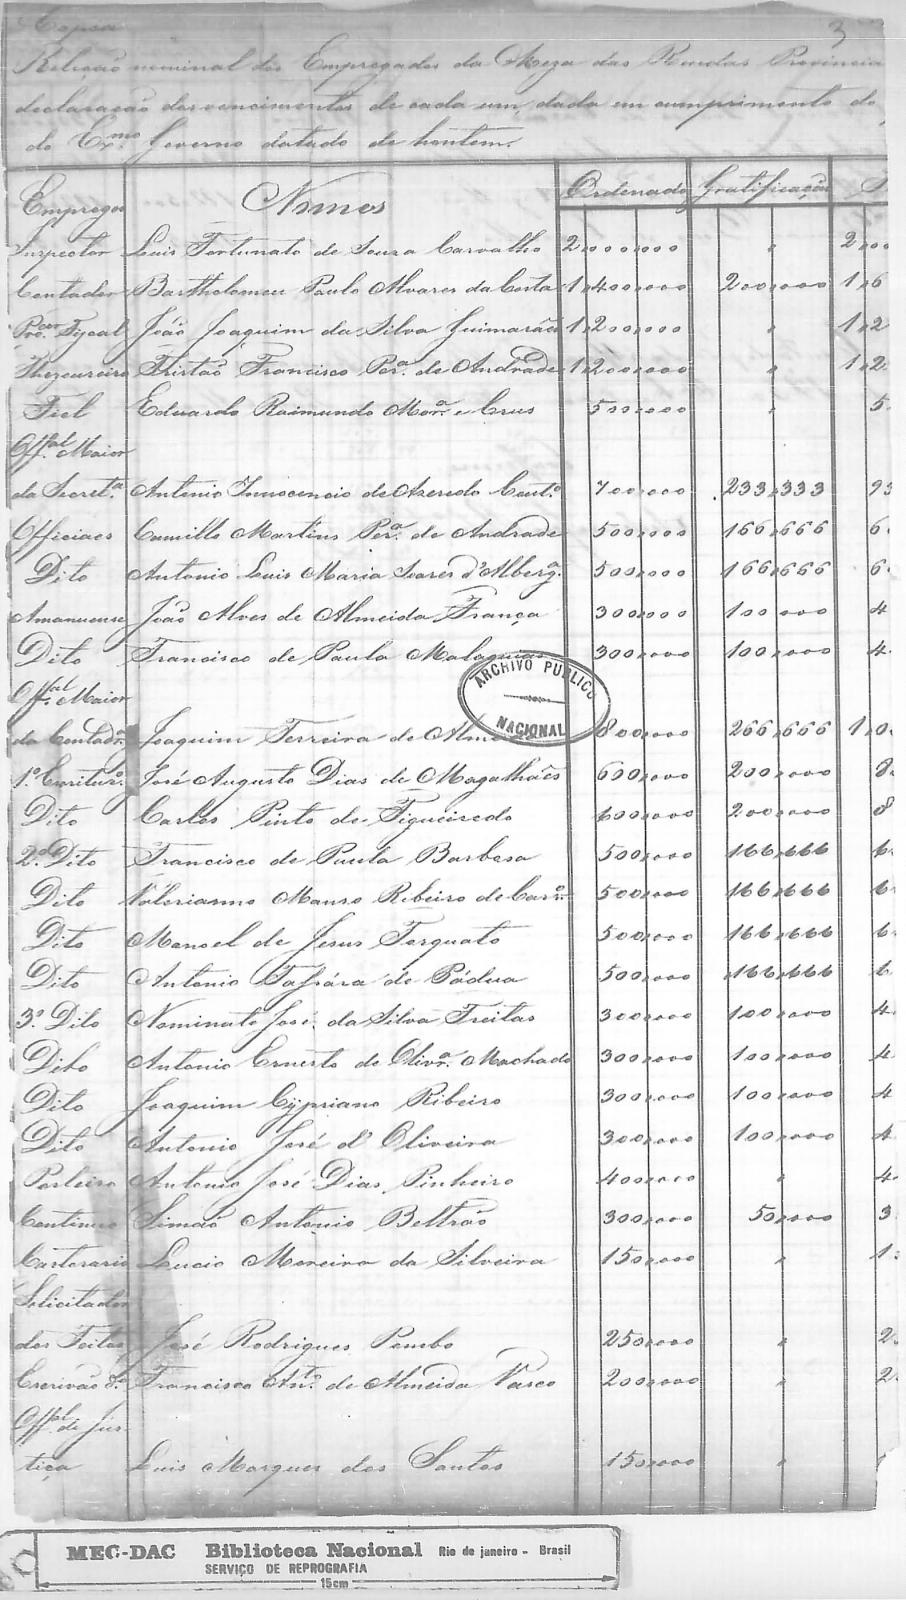 Copia
3
Relação nominal dos Empregados da Meza das Rendas Provincia
declaração dos vencimentos de cada um, dada em cumprimento do
do Ex.mo Governo datado de hontem.
Empregos Nomes Ordenado Gratificação
Inspector Luis Fortunato de Souza Carvalho 2,000,000 " 2,00
Contador Bartholomeu Paulo Alvares da Costa 1,400,000 200,000 1,6
Pro.or Fiscal João Joaquim da Silva Guimarães 1,200,000 " 1,2
Thezoureiro Tristão Francisco Per.a de Andrade 1,200,000 " 1,2
Fiel Eduardo Raimundo Mor.a e Crus 500,000 " 5
Off.al Maior
da Secret.a Antonio Innocencio de Azeredo Cout.o 700,000 233,333 93
Officiaes Camillo Martins Per.a de Andrade 500,000 166,666 6
Dito Antonio Luis Maria Soares d'Alberg.a 500,000 166,666 6
Amanuense João Alves de Almeida França 300,000 100,000 4
Dito Francisco de Paula Malaquias 300,000 100,000 4
ARCHIVO PUBLICO
NACIONAL
Off.al Maior
da Contad.a Joaquim Ferreira de Alme 800,000 266,666 1,0
1.o Escritur.o José Augusto Dias de Magalhães 600,000 200,000 8
Dito Carlos Pinto de Figueiredo 600,000 200,000 8
2.o Dito Francisco de Paula Barbosa 500,000 166,666 6
Dito Valerianno Manso Ribeiro de Car.o 500,000 166,666 6
Dito Manoel de Jesus Torquato 500,000 166,666 6
Dito Antonio de Pádua 500,000 166,666 6
3.o Dito Nominato José da Silva Freitas 300,000 100,000 4
Dito Antonio Ernesto de Olivr.a Machado 300,000 100,000 4
Dito Joaquim Cypriano Ribeiro 300,000 100,000 4
Dito Antonio José d'Oliveira 300,000 100,000 4
Porteiro Antonio José Dias Pinheiro 400,000 " 4
Continuo Simão Antonio Beltrão 300,000 50,000 3
Cartorario Lucio Moreira da Silveira 150,000 " 1
Solicitador
dos Feitos José Rodrigues Pombo 250,000 " 2
Escrivão d.o Francisco Ant.o de Almeida Vasco 200,000 " 2
Off.al de Jus-
tiça Luis Marques dos Santos 150,000 "
MEC-DAC Biblioteca Nacional Rio de janeiro - Brasil
SERVIÇO DE REPROGRAFIA
15cm